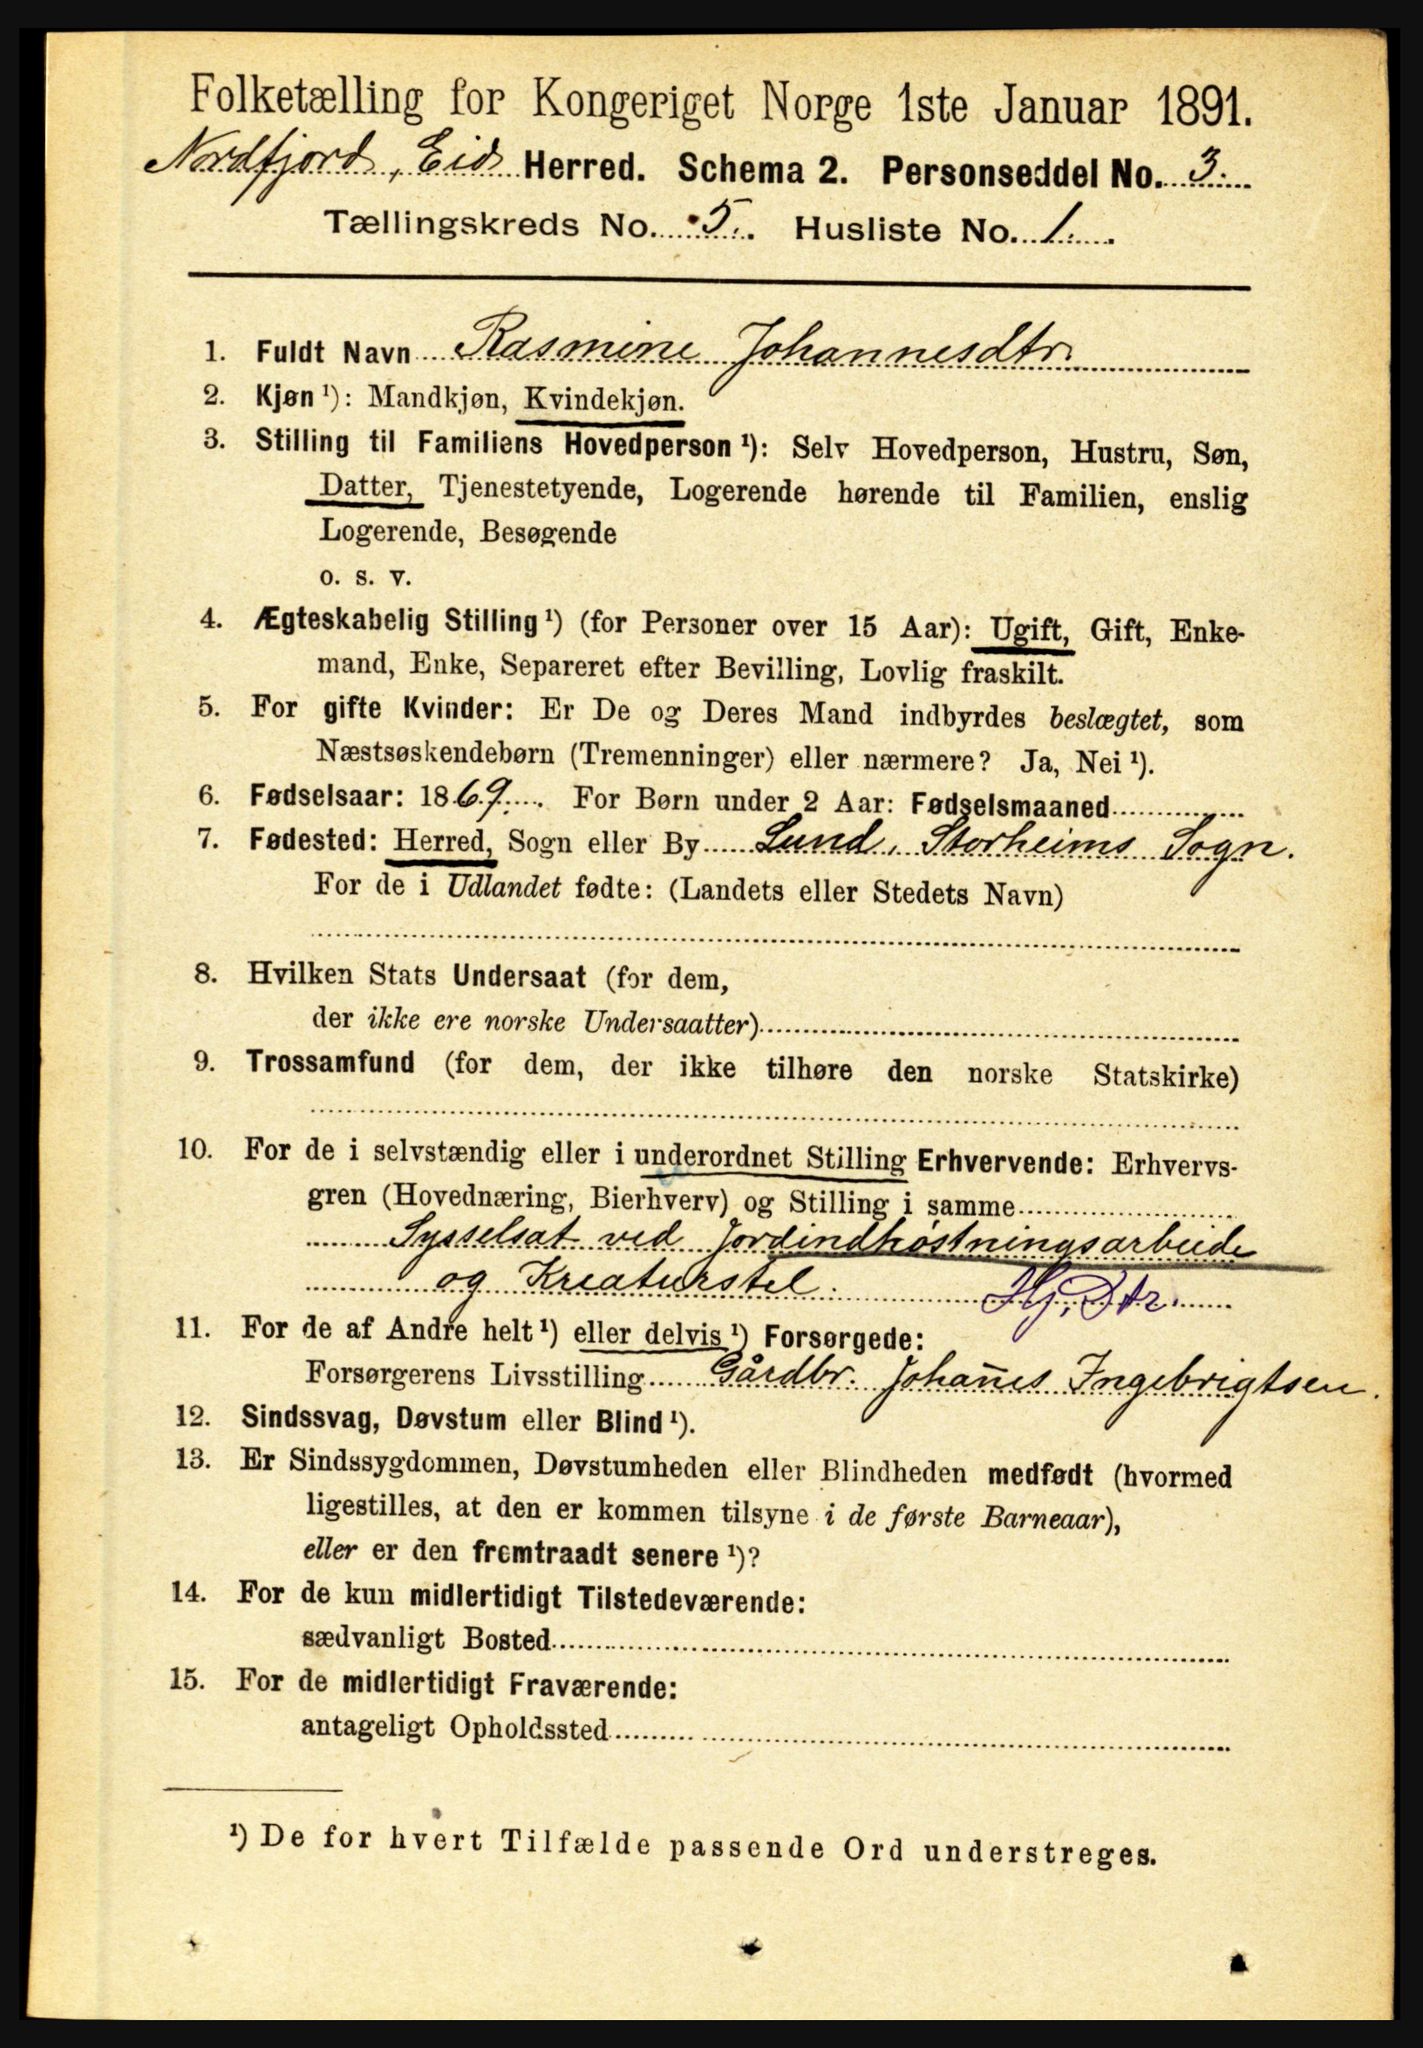 Folketælling for Kongeriget Norge 1ste Januar 1891.
Nordfjord, Eid Herred. Schema 2. Personseddel No. 3.
Tællingskreds No. 5. Husliste No. 1.
1. Fuldt Navn Rasmine Johannesdtr.
2. Kjøn ¹): Mandkjøn, Kvindekjøn.
3. Stilling til Familiens Hovedperson ¹): Selv Hovedperson, Hustru, Søn,
Datter, Tjenestetyende, Logerende hørende til Familien, enslig
Logerende, Besøgende
o. s. v.
4. Ægteskabelig Stilling ¹) (for Personer over 15 Aar): Ugift, Gift, Enke-
mand, Enke, Separeret efter Bevilling, Lovlig fraskilt.
5. For gifte Kvinder: Er De og Deres Mand indbyrdes beslægtet, som
Næstsøskendebørn (Tremenninger) eller nærmere? Ja, Nei ¹).
6. Fødselsaar: 1869. For Børn under 2 Aar: Fødselsmaaned
7. Fødested: Herred, Sogn eller By Lund, Storheims Sogn.
For de i Udlandet fødte: (Landets eller Stedets Navn)
8. Hvilken Stats Undersaat (for dem,
der ikke ere norske Undersaatter)
9. Trossamfund (for dem, der ikke tilhøre den norske Statskirke)
10. For de i selvstændig eller i underordnet Stilling Erhvervende: Erhvervs-
gren (Hovednæring, Bierhverv) og Stilling i samme
Sysselsat ved Jordindhøstningsarbeide
og Kreaturstel. Hj. Dtr.
11. For de af Andre helt ¹) eller delvis ¹) Forsørgede:
Forsørgerens Livsstilling Gårdbr. Johan̅es Ingebrigtsen.
12. Sindssvag, Døvstum eller Blind ¹).
13. Er Sindssygdommen, Døvstumheden eller Blindheden medfødt (hvormed
ligestilles, at den er kommen tilsyne i de første Barneaar),
eller er den fremtraadt senere ¹)?
14. For de kun midlertidigt Tilstedeværende:
sædvanligt Bosted
15. For de midlertidigt Fraværende:
antageligt Opholdssted
¹) De for hvert Tilfælde passende Ord understreges.